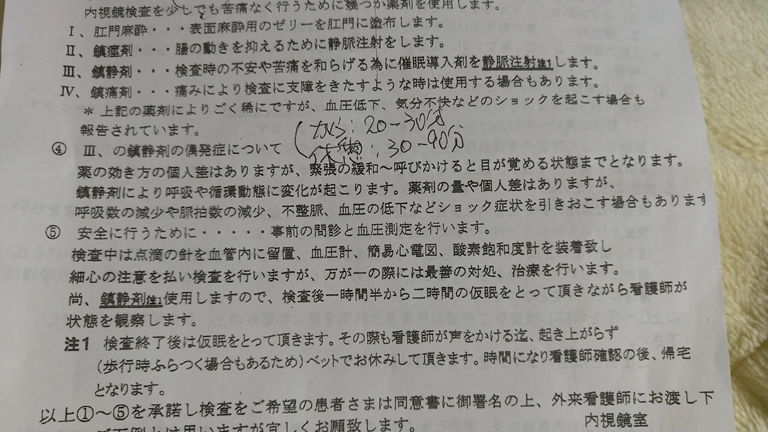 内視鏡検査を少しでも苦痛なく行うために幾つか薬剤を使用します。
Ⅰ、肛門麻酔・・・表面麻酔用のゼリーを肛門に塗布します。
Ⅱ、鎮痙剤・・・腸の動きを抑えるために静脈注射をします。
Ⅲ、鎮静剤・・・検査時の不安や苦痛を和らげる為に催眠導入剤を静脈注射注1します。
Ⅳ、鎮痛剤・・・痛みにより検査に支障をきたすような時は使用する場合もあります。
＊ 上記の薬剤によりごく稀にですが、血圧低下、気分不快などのショックを起こす場合も
報告されています。
: 20-30分
④ Ⅲ、の鎮静剤の偶発症について
: 30-90分
薬の効き方の個人差はありますが、緊張の緩和～呼びかけると目が覚める状態までとなります。
鎮静剤により呼吸や循環動態に変化が起こります。薬剤の量や個人差はありますが、
呼吸数の減少や脈拍数の減少、不整脈、血圧の低下などショック症状を引きおこす場合もあります
⑤ 安全に行うために・・・・・事前の問診と血圧測定を行います。
検査中は点滴の針を血管内に留置、血圧計、簡易心電図、酸素飽和度計を装着致し
細心の注意を払い検査を行いますが、万が一の際には最善の対処、治療を行います。
尚、鎮静剤注1使用しますので、検査後一時間半から二時間の仮眠をとって頂きながら看護師が
状態を観察します。
注1 検査終了後は仮眠をとって頂ます。その際も看護師が声をかける迄、起き上がらず
(歩行時ふらつく場合もあるため)ベットでお休みして頂ます。時間になり看護師確認の後、帰宅
となります。
以上①～⑤を承諾し検査をご希望の患者さまは同意書に御署名の上、外来看護師にお渡し下
内視鏡室